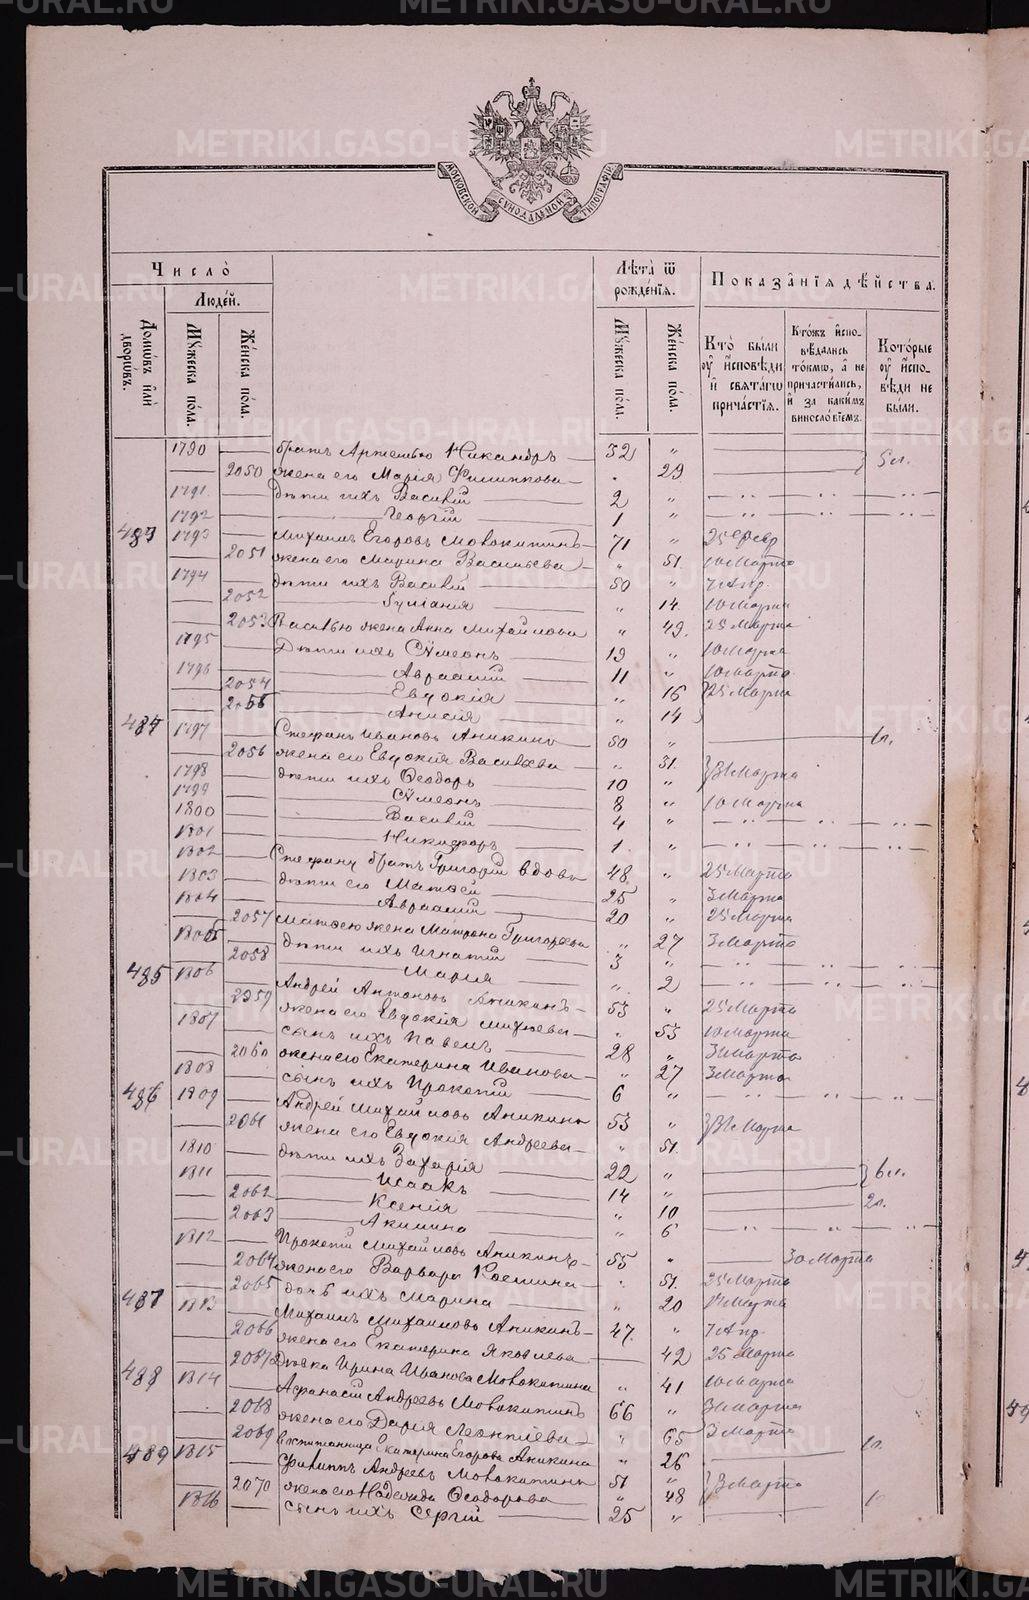 METRIKI.GASO-URAL.RU
МОСКОВСКОЙ СѴНОДАЛЬНОЙ ТИПОГРАФІИ
Число̀
Люде́й.
Домѡ́въ и҆лѝ дворѡ́въ.
Мꙋ́жеска по́ла.
Же́нска по́ла.
Лѣ́та ѿ рожде́нїѧ.
Мꙋ́жеска по́ла.
Же́нска по́ла.
Показа̑нїѧ дѣ́йства.
Кто̀ бы́ли ᲂу҆ и҆сповѣ́ди и҆ свѧта́гѡ прича́стїѧ.
Кто́жъ и҆спо-вѣ́дались то́кмѡ, а҆ не причасти́лись, и҆ за каки́мъ винослѡ́вїемъ.
Кото́рые ᲂу҆ и҆спо-вѣ́ди не бы́ли.
1790 братъ Артемью Никандръ 32 „ 5 л.
2050 жена его Марія Филиппова 29
1791 дѣти ихъ Василій 2 „
1792 Георгій 1 „
483 1793 Михаилъ Егоровъ Мовокитинъ 71 „ 25 Февр
2051 жена его Марина Васильева „ 51 10 Марта
1794 дѣти ихъ Василій 50 „ 7 Апр.
2052 „ 14 10 Марта
2053 Василью жена Анна Михайлова „ 49 25 Марта
1795 Дѣти ихъ Сѵмеонъ 19 „ 10 Марта
1796 Авраамій 11 „ 10 Марта
2054 Евдокія „ 16 25 Марта
2055 Анисія „ 14
484 1797 Стефанъ Ивановъ Аникинъ 50 „ 6 л.
2056 жена его Евдокія Васильева „ 31 31 Марта
1798 дѣти ихъ Ѳеодоръ 10 „
1799 Сѵмеонъ 8 „ 10 Марта
1800 Василій 4 „
1801 Никифоръ 1 „
1802 Стефану братъ Григорій вдовъ 48 „ 25 Марта
1803 дѣти его Матѳей 25 „ 3 Марта
1804 Авраамій 20 „ 25 Марта
2057 Матѳею жена Матрона Григорьева „ 27 3 Марта
1805 дѣти ихъ Игнатій 3 „
2058 Марія „ 2
485 1806 Андрей Антоновъ Аникинъ 53 „ 25 Марта
2059 жена его Евдокія Михѣева „ 53 10 Марта
1807 сынъ ихъ Павелъ 28 „ 31 Марта
2060 жена его Екатерина Иванова „ 27 3 Марта
1808 сынъ ихъ Прокопій 6 „
486 1809 Андрей Михайловъ Аникинъ 53 „ 31 Марта
2061 жена его Евдокія Андреева „ 51
1810 дѣти ихъ Захарія 22 „ 6 л.
1811 Исаакъ 14 „
2062 Ксенія „ 10 2 л.
2063 Акилина „ 6
1812 Прокопій Михайловъ Аникинъ 55 „ 30 Марта
2064 жена его Варвара „ 51 25 Марта
2065 дочь ихъ Марина „ 20 Марта
487 1813 Михаилъ Михайловъ Аникинъ 47 „ 7 Апр.
2066 жена его Екатерина Яковлева 42 25 Марта
2067 Дѣвка Ирина Иванова Мовокитина „ 41 10 Марта
488 1814 Аѳанасій Андреевъ Мовокитинъ 66 „ 31 Марта
2068 жена его Дарія Леонтіева „ 65 3 Марта
2069 Воспитанница Екатерина Егорова Аникина „ 26 1 л.
489 1815 Филиппъ Андреевъ Мовокитинъ 51 „ 3 Марта
2070 жена его Надежда Ѳеодорова „ 48
1816 сынъ ихъ Сергій 25 „